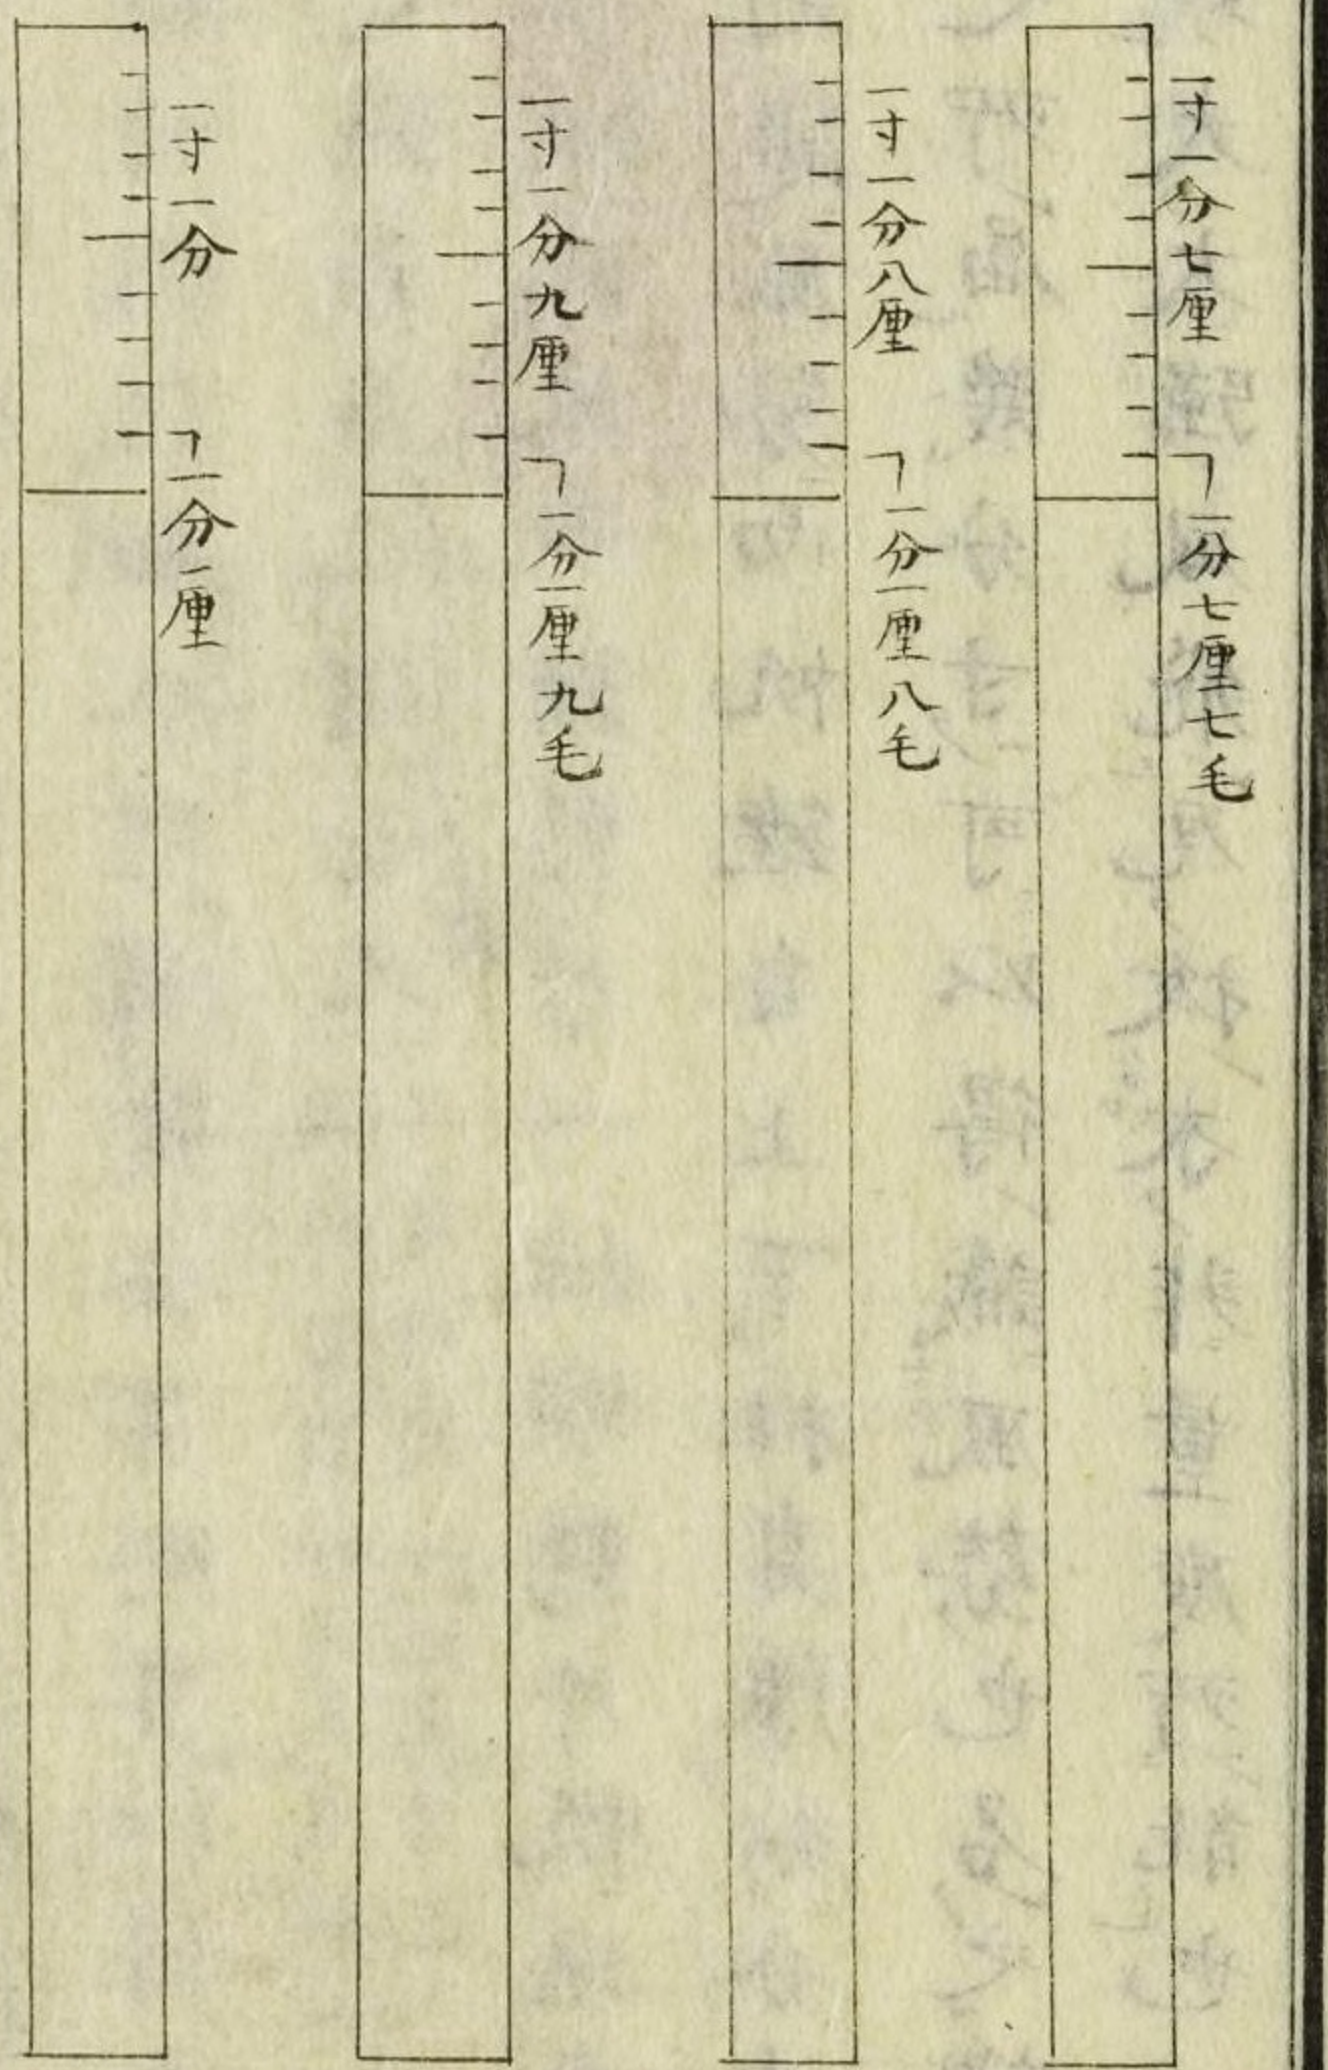 一寸一分七厘 ㄱ一分七厘七毛
一寸一分八厘 ㄱ一分一厘八毛
一寸一分九厘 ㄱ一分一厘九毛
一寸一分 ㄱ一分一厘